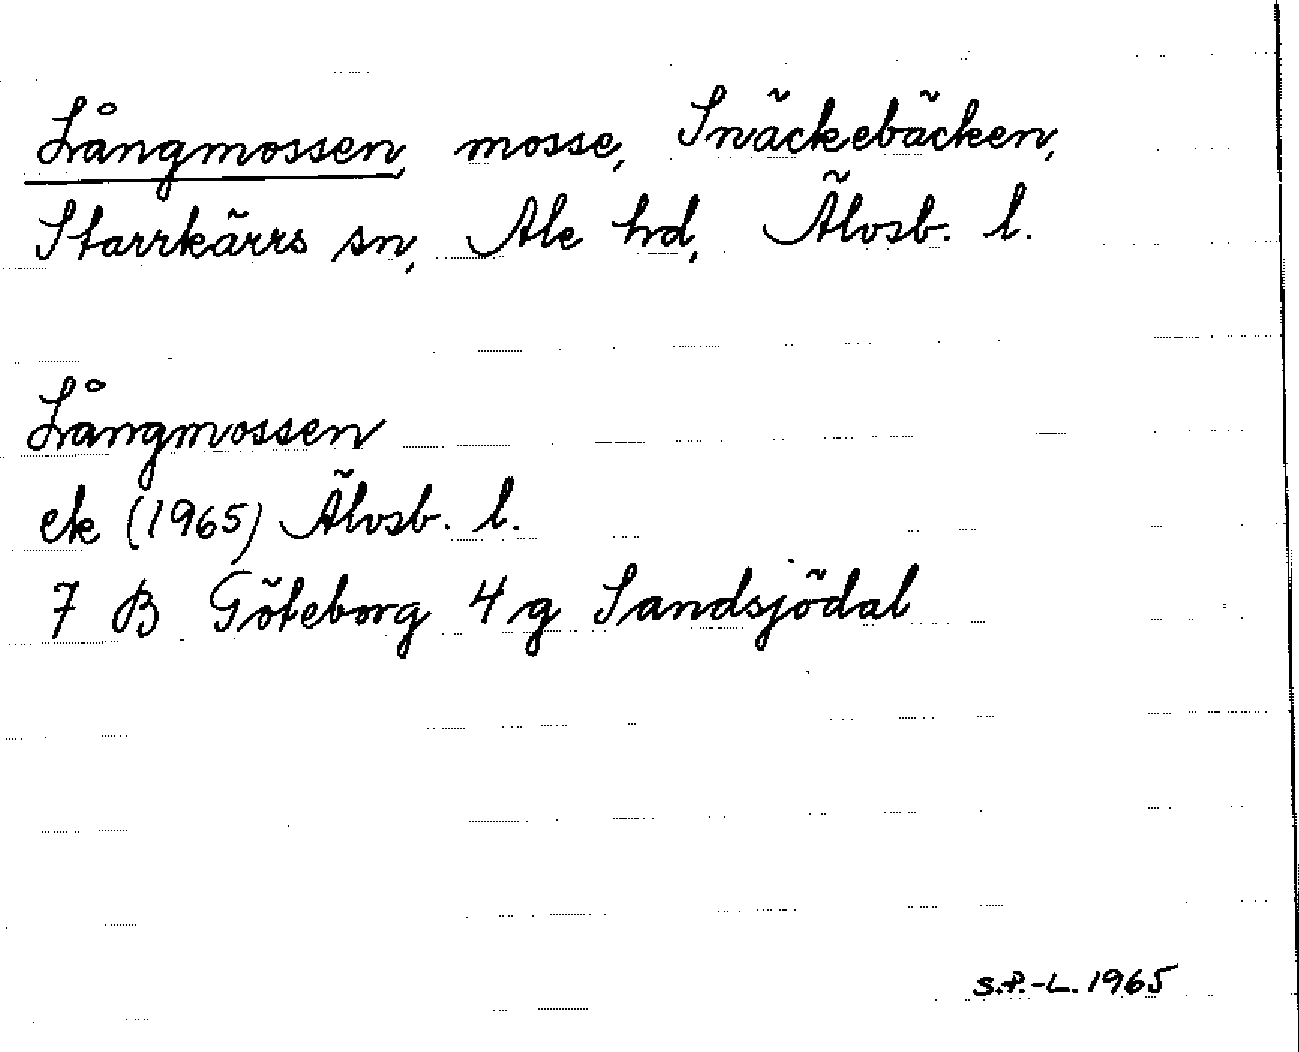 Långmossen, mosse, Snäckebäcken,
Starrkärrs sn, Ale hd, Älvsb. l.
Långmossen
ek (1965) Älvsb. l.
7 B Göteborg 4 g Sandsjödal
S.P.-L. 1965